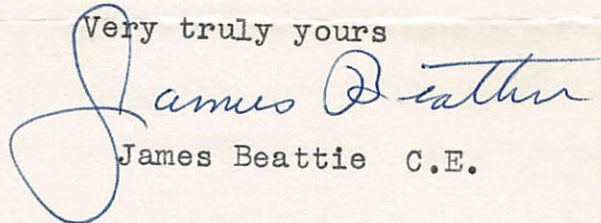 Very truly yours
James Beattie
James Beattie C.E.